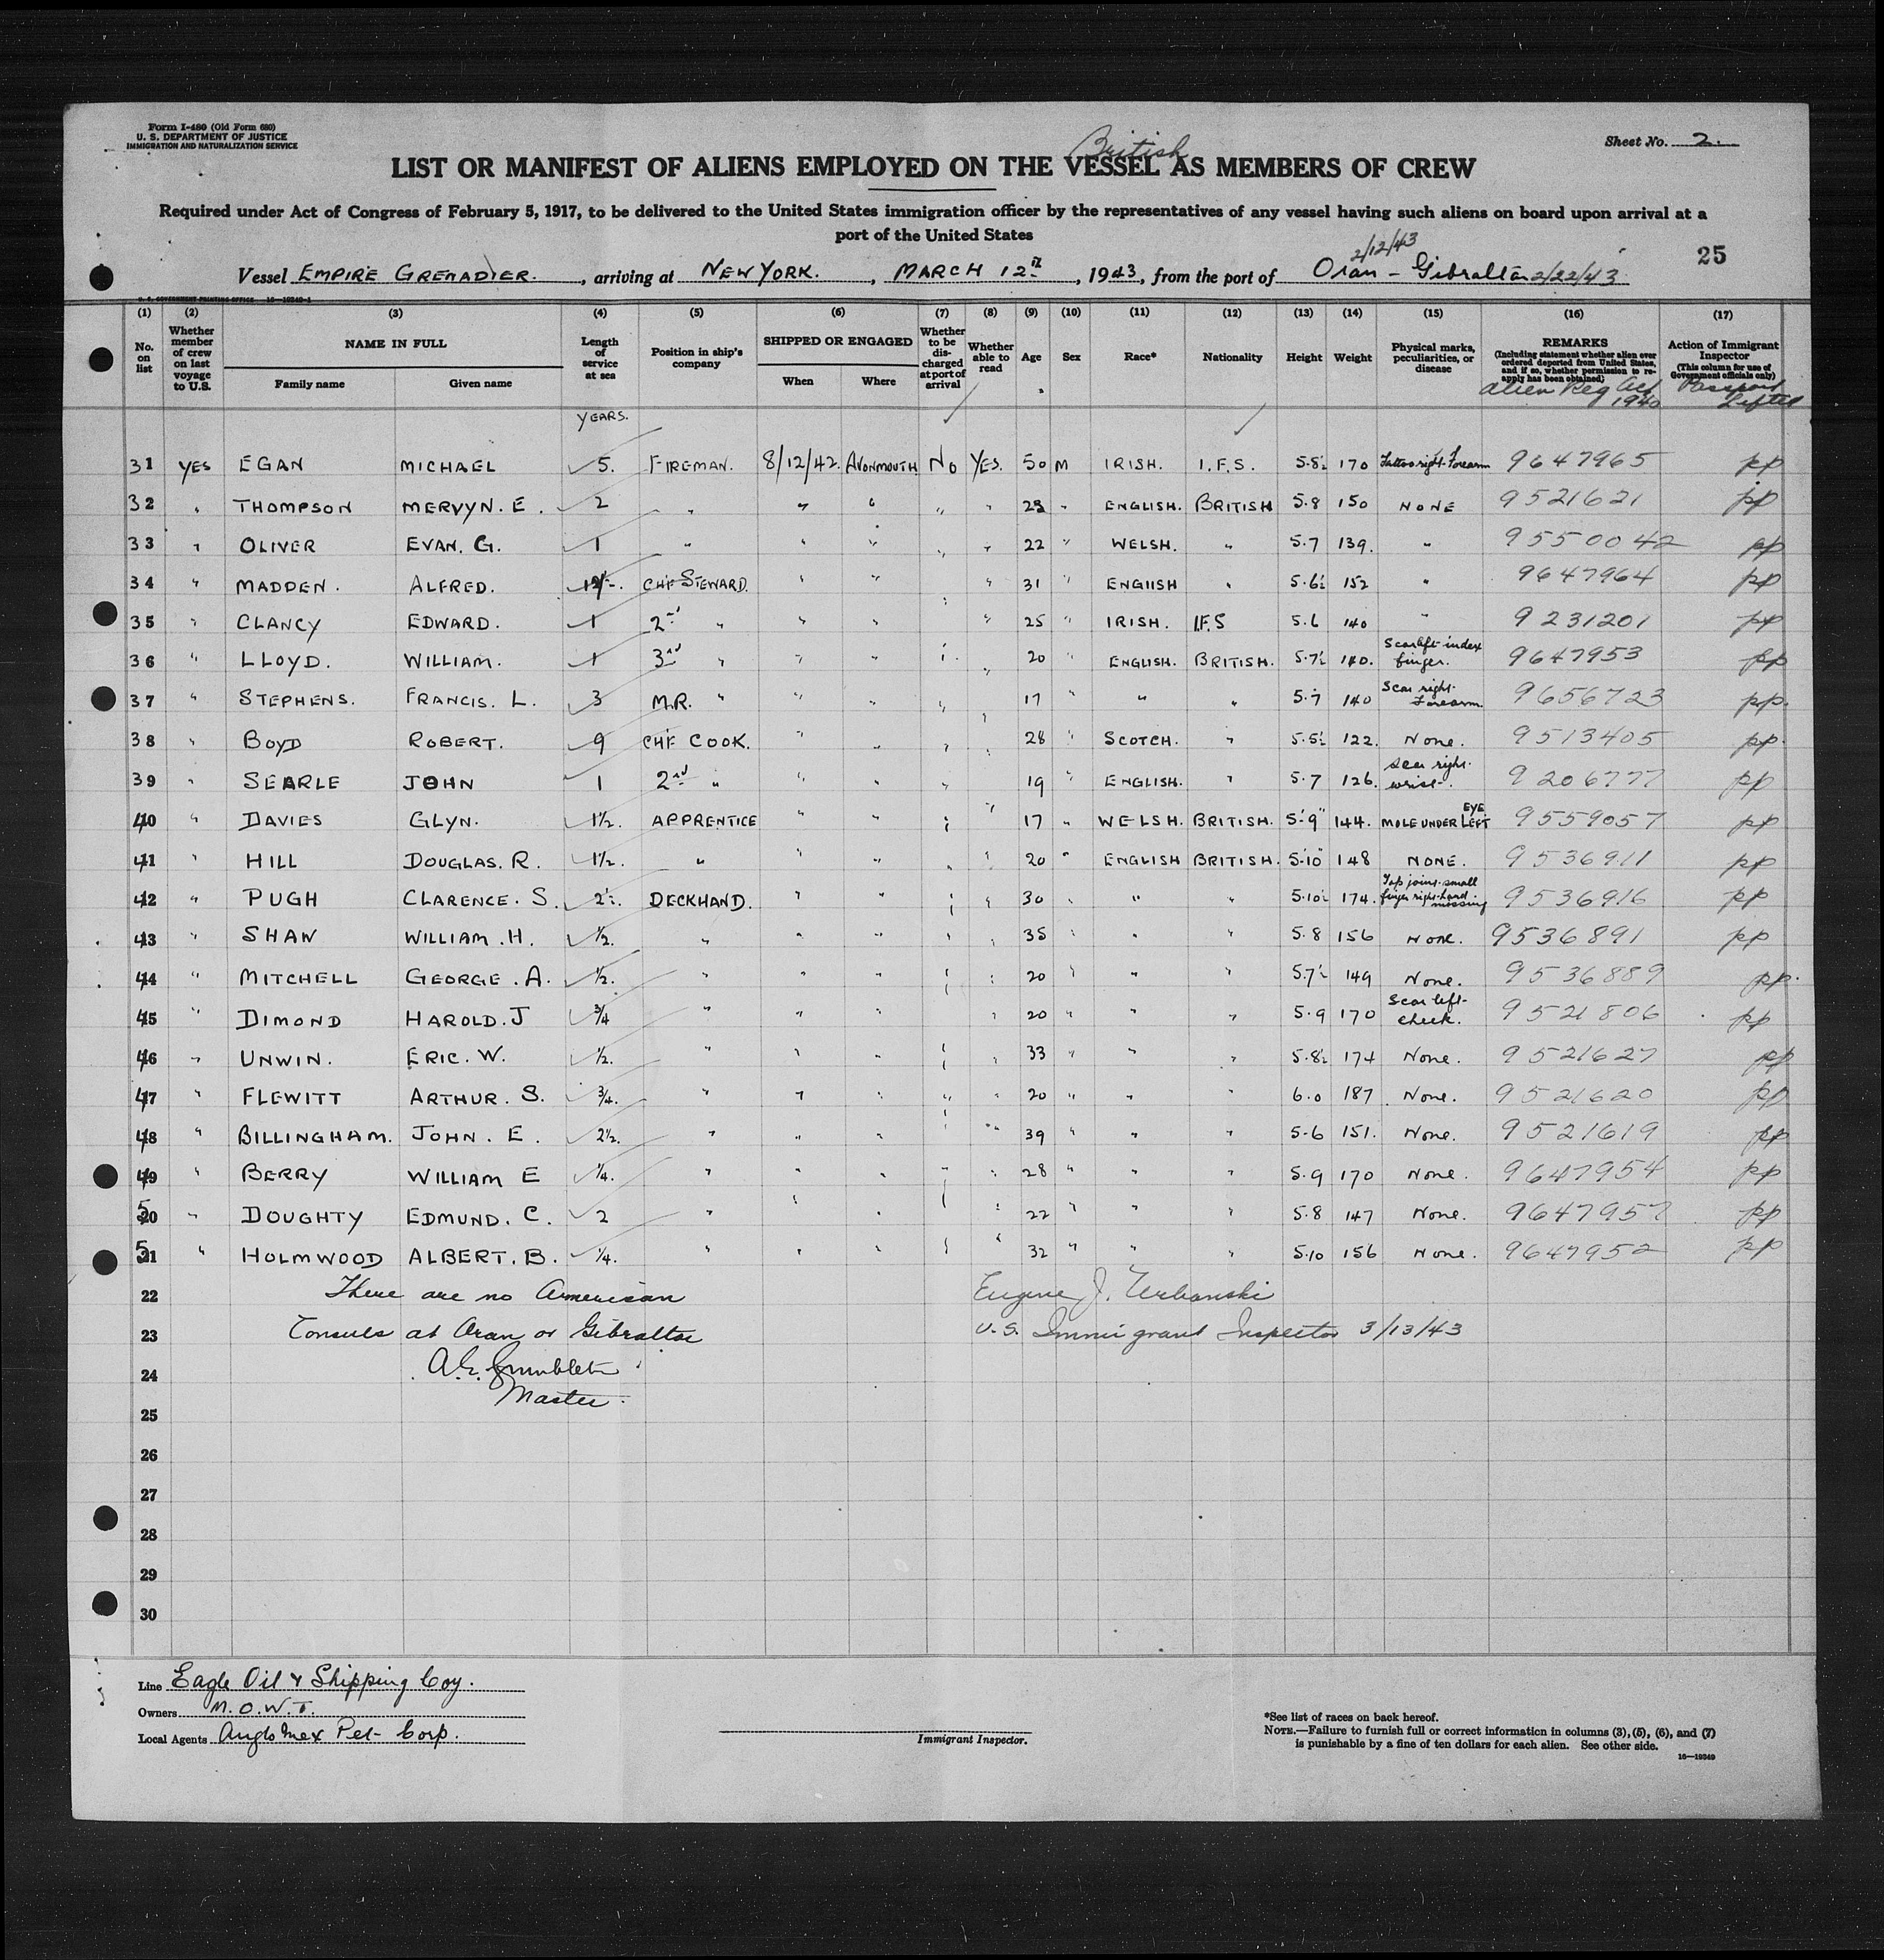 Form I-480 (Old Form 680)
U. S. DEPARTMENT OF JUSTICE
IMMIGRATION AND NATURALIZATION SERVICE
Sheet No. 2.
British
LIST OR MANIFEST OF ALIENS EMPLOYED ON THE VESSEL AS MEMBERS OF CREW
Required under Act of Congress of February 5, 1917, to be delivered to the United States immigration officer by the representatives of any vessel having such aliens on board upon arrival at a
port of the United States
2/12/43
25
Vessel EMPIRE GRENADIER. , arriving at NEW YORK. , MARCH 12th , 1943, from the port of Oran - Gibraltar 2/22/43
U. S. GOVERNMENT PRINTING OFFICE 16-19349-1
(1) (2) (3) (4) (5) (6) (7) (8) (9) (10) (11) (12) (13) (14) (15) (16) (17)
No. on list
Whether member of crew on last voyage to U.S.
NAME IN FULL
Family name Given name
Length of service at sea
Position in ship's company
SHIPPED OR ENGAGED
When Where
Whether to be discharged at port of arrival
Whether able to read
Age
Sex
Race*
Nationality
Height
Weight
Physical marks, peculiarities, or disease
REMARKS
(Including statement whether alien ever ordered deported from United States, and if so, whether permission to reapply has been obtained)
Alien Reg Act 1940
Action of Immigrant Inspector
(This column for use of Government officials only)
Passport Lifted
YEARS.
31 YES EGAN MICHAEL 5. FIREMAN. 8/12/42. AVONMOUTH No YES. 50 M IRISH. I.F.S. 5.8½ 170 Tattoo right Forearm 9647965 pp
32 " THOMPSON MERVYN. E. 2 " " " " " 23 " ENGLISH. BRITISH 5.8 150 NONE 9521621 pp
33 " OLIVER EVAN. G. 1 " " " " " 22 " WELSH. " 5.7 139. " 9550042 pp
34 " MADDEN. ALFRED. CHF STEWARD. " " " " 31 " ENGLISH " 5.6½ 152 " 9647964 pp
35 " CLANCY EDWARD. 1 2nd " " " " " 25 " IRISH. I.F.S 5.6 140 " 9231201 pp
36 " LLOYD. WILLIAM. 1 3rd " " " " " 20 " ENGLISH. BRITISH. 5.7½ 140. Scar left index finger. 9647953 pp
37 " STEPHENS. FRANCIS. L. 3 M.R. " " " " " 17 " " " 5.7 140 Scar right Forearm 9656723 pp.
38 " BOYD ROBERT. 9 CHF COOK. " " " " 28 " SCOTCH. " 5.5½ 122. None. 9513405 pp.
39 " SEARLE JOHN 1 2nd " " " " " 19 " ENGLISH. " 5.7 126. Scar right wrist. 9206777 pp
40 " DAVIES GLYN. 1½. APPRENTICE " " " " 17 " WELSH. BRITISH. 5'.9" 144. MOLE UNDER LEFT EYE 9559057 pp
41 " HILL DOUGLAS. R. 1½. " " " " " 20 " ENGLISH BRITISH. 5'.10" 148 NONE. 9536911 pp
42 " PUGH CLARENCE. S. 2½. DECKHAND. " " " " 30 " " " 5.10½ 174. Top joint small finger right hand missing 9536916 pp
43 " SHAW WILLIAM. H. ½. " " " " " 35 " " " 5.8 156 None. 9536891 pp
44 " MITCHELL GEORGE. A. ½. " " " " " 20 " " " 5.7½ 149 None. 9536889 pp.
45 " DIMOND HAROLD. J ¾ " " " " " 20 " " " 5.9 170 Scar left cheek. 9521806 pp
46 " UNWIN. ERIC. W. ½. " " " " " 33 " " " 5.8½ 174 None. 9521627 pp
47 " FLEWITT ARTHUR. S. ¾. " " " " " 20 " " " 6.0 187 None. 9521620 pp
48 " BILLINGHAM. JOHN. E. 2½. " " " " " 39 " " " 5.6 151. None. 9521619 pp
49 " BERRY WILLIAM E ¼. " " " " " 28 " " " 5.9 170 None. 9647954 pp
50 " DOUGHTY EDMUND. C. 2 " " " " " 22 " " " 5.8 147 None. 9647957 pp
51 " HOLMWOOD ALBERT. B. ¼. " " " " " 32 " " " 5.10 156 None. 9647952 pp
22 There are no American Eugene J. Urbanski
23 Consuls at Oran or Gibraltar U.S. Immigrant Inspector 3/13/43
24
Master.
25
26
27
28
29
30
Line Eagle Oil & Shipping Coy.
Owners M.O.W.T.
Local Agents Anglo Mex Pet Corp.
Immigrant Inspector.
*See list of races on back hereof.
NOTE.—Failure to furnish full or correct information in columns (3), (5), (6), and (7)
is punishable by a fine of ten dollars for each alien. See other side.
16—19349